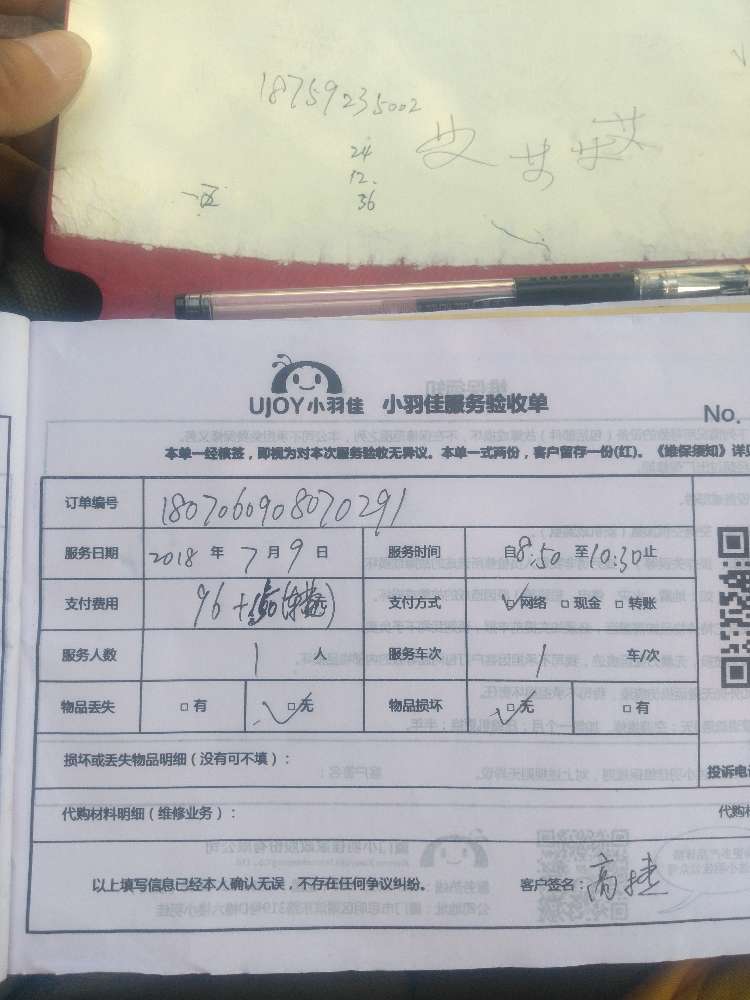 18759235002
24
12.
36
一区
艾
UJOY小羽佳 小羽佳服务验收单
No.
本单一经核签，即视为对本次服务验收无异议。本单一式两份，客户留存一份(红)。《维保须知》详见
订单编号 1807060908070291
服务日期 2018 年 7 月 9 日 服务时间 自8:50 至10:30止
支付费用 96+ 支付方式 ☑网络 □现金 □转账
服务人数 1 人 服务车次 1 车/次
物品丢失 □有 ☑无 物品损坏 ☑无 □有
损坏或丢失物品明细（没有可不填）：
投诉电话
代购材料明细（维修业务）：
代购
以上填写信息已经本人确认无误，不存在任何争议纠纷。 客户签名：高捷